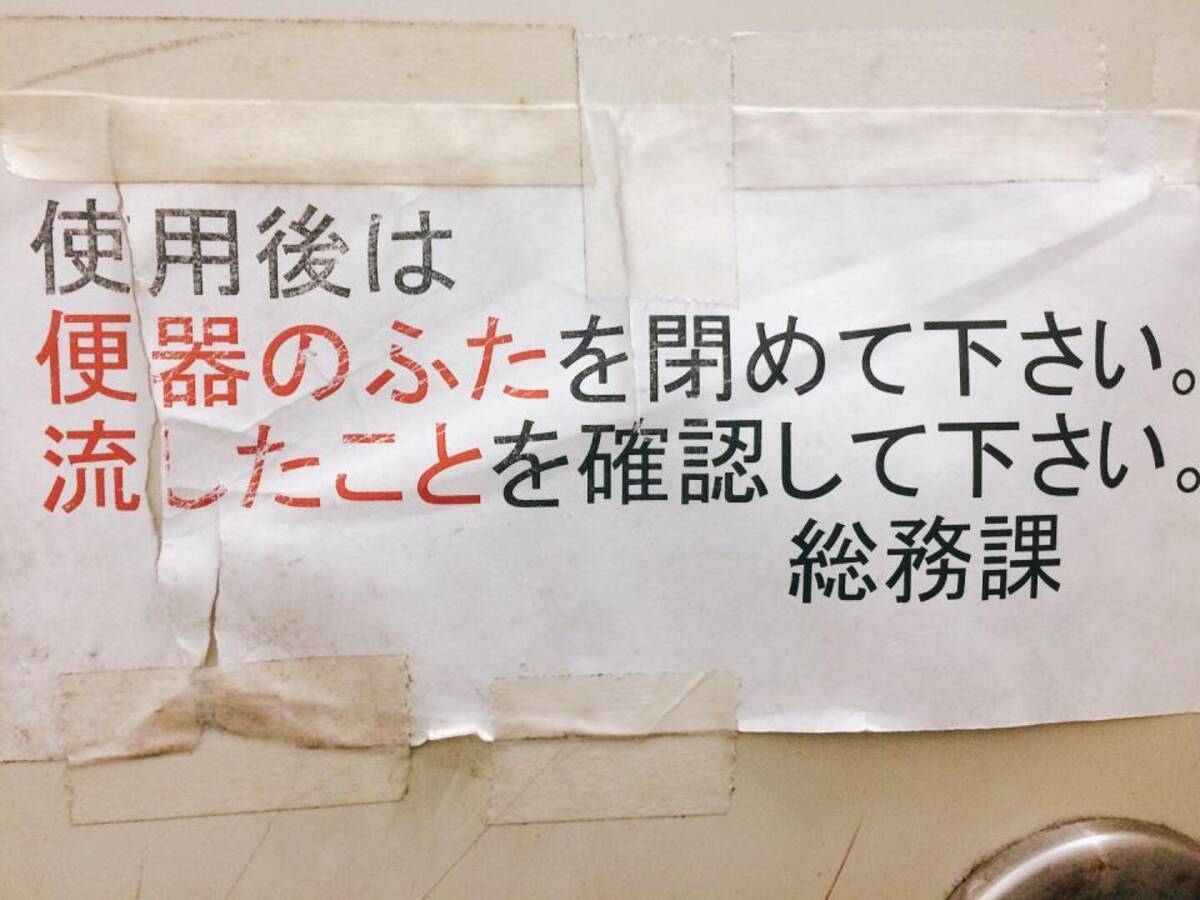 使用後は
便器のふたを閉めて下さい。
流したことを確認して下さい。
総務課